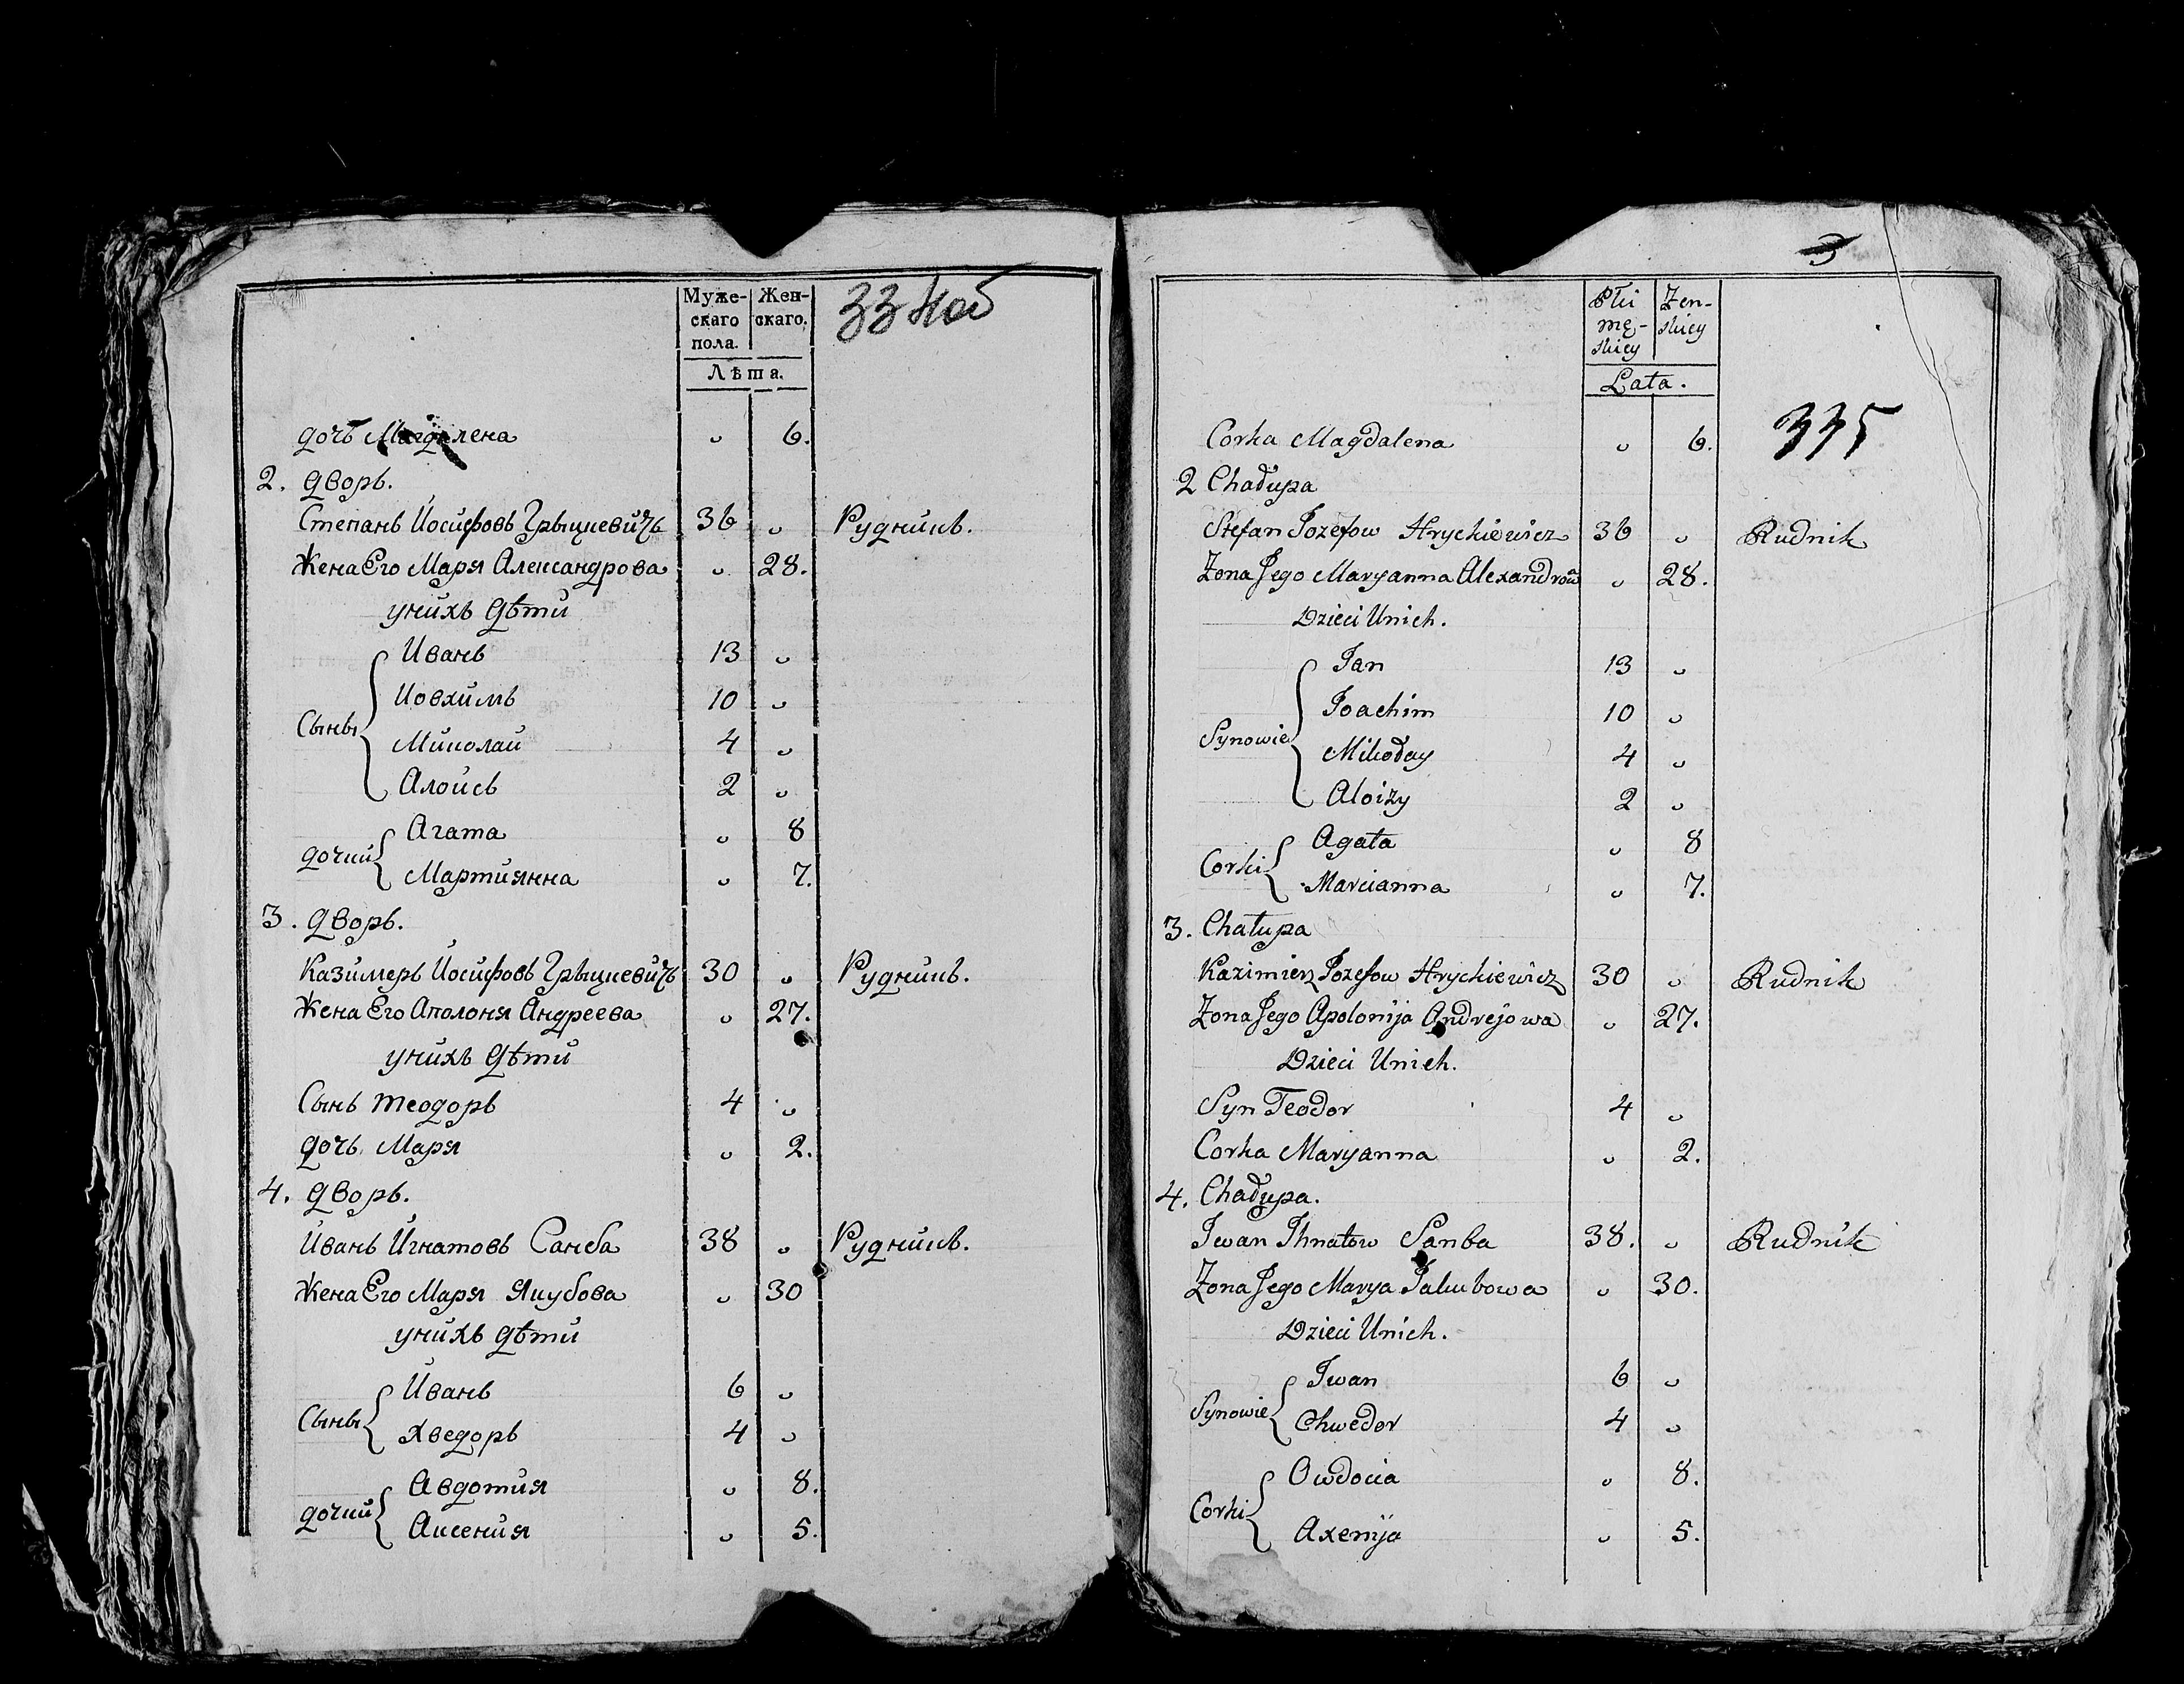 Муже-
скаго
пола.
Жен-
скаго.
33 Коб
Лѣта.
дочь Магдалена 6.
2. дворъ.
Степанъ Иосифовъ Грыцкевичъ 36 Рудникъ.
Жена Его Марья Александрова 28.
у нихъ дѣти
Сыны
Иванъ 13
Иовхимъ 10
Миколай 4
Алоисъ 2
дочки
Агата 8
Мартиянна 7.
3. дворъ.
Казимеръ Иосифовъ Грыцкевичъ 30 Рудникъ.
Жена Его Аполонья Андреева 27.
у нихъ дѣти
Сынъ Теодоръ 4
дочь Марья 2.
4. дворъ.
Иванъ Игнатовъ Санба 38 Рудникъ.
Жена Его Марья Якубова 30
у нихъ дѣти
Сыны
Иванъ 6
Хведоръ 4
дочки
Авдотия 8.
Аксения 5.
3
Płci
mę-
skiey
Żen-
skiey
Lata.
335
Corka Magdalena 6.
2 Chałupa
Stefan Jozefow Hryckiewicz 36 Rudnik
Żona Jego Maryanna Alexandrow 28.
Dzieci Unich.
Synowie
Jan 13
Joachim 10
Mikołay 4
Aloizy 2
Corki
Agata 8
Marcianna 7.
3. Chałupa
Kazimierz Jozefow Hryckiewicz 30 Rudnik
Żona Jego Apolonija Andrejowa 27.
Dzieci Unich.
Syn Teodor 4
Corka Maryanna 2.
4. Chałupa.
Iwan Ihnatow Sanba 38. Rudnik
Żona Jego Marya Jakubowa 30.
Dzieci Unich.
Synowie
Iwan 6
Chwedor 4
Corki
Owdocia 8.
Axenija 5.